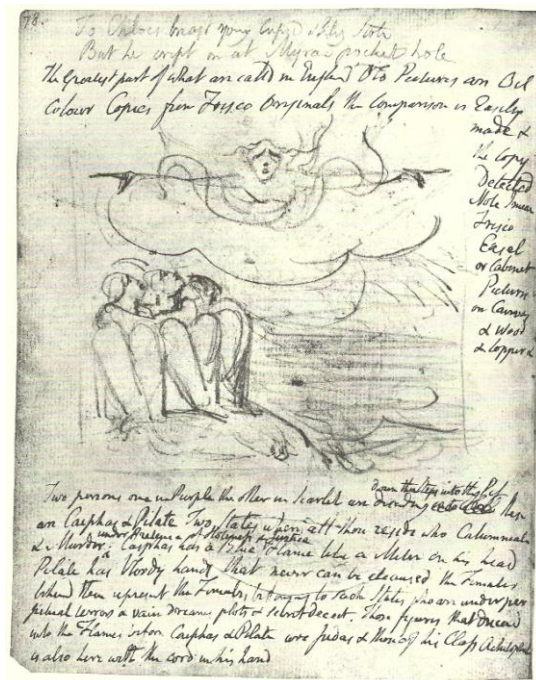 78.
To Chloes breast young Cupid slily stole
But he crept in at Myras pocket hole
The greatest part of what are calld in England Old Pictures are Oil
Colour Copies from Fresco Originals the Comparison is Easily
made &
the Copy
Detected
Note I mean
Fresco
Easel
or Cabinet
Pictures
on Canvas
& Wood
& Copper &
down the steps into the Pit
Two persons one in Purple the other in Scarlet are descending these
are Caiphas & Pilate Two States where all those reside who Calumniate
under Pretence of Holiness & Justice
& Murder Caiphas has a Blue Flame like a Miter on his head
Pilate has bloody hands that never can be cleansed the Females
behind them represent the Females belonging to such States who are under per
petual terrors & vain dreams plots & secret deceit. Those figures that descend
into the Flames before Caiphas & Pilate are Judas & those of his Class Achitophel
is also here with the cord in his hand